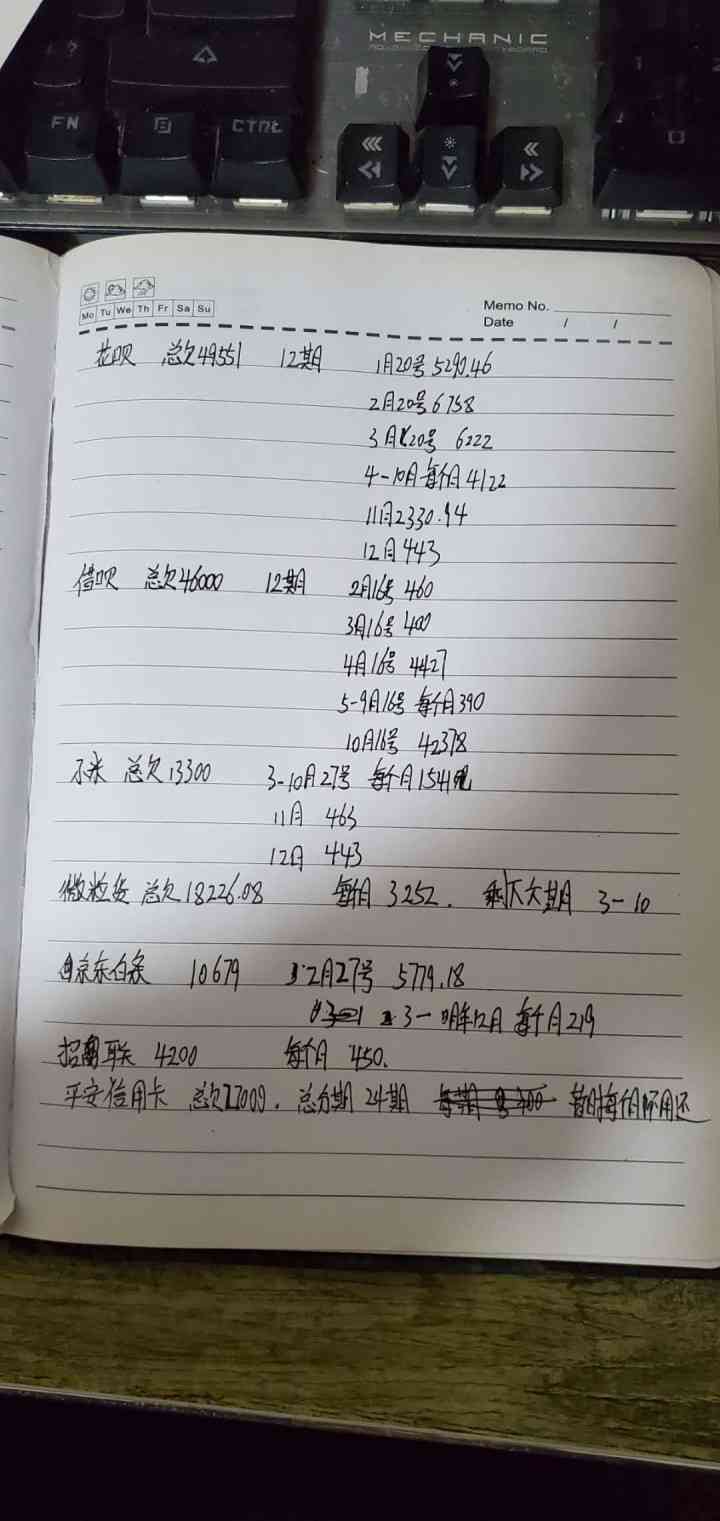 MECHANIC
FN
CTRL
Mo Tu We Th Fr Sa Su
Memo No.
Date / /
花呗 总欠49551 12期 1月20号 5290.46
2月20号 6758
3月20号 6222
4-10月每个月4122
11月2330.94
12月443
借呗 总欠46000 12期 2月16号 460
3月16号 400
4月16号 4427
5-9月16号 每个月390
10月16号 42378
小米 总欠13300 3-10月27号 每个月1541
11月 463
12月 443
微粒贷 总欠18226.08 每个月 3252. 剩下六期 3-10
京东白条 10679 2月27号 5779.18
3-明年12月 每个月219
招商联 4200 每个月 450.
平安信用卡 总分期 24期 暂时每个月不用还